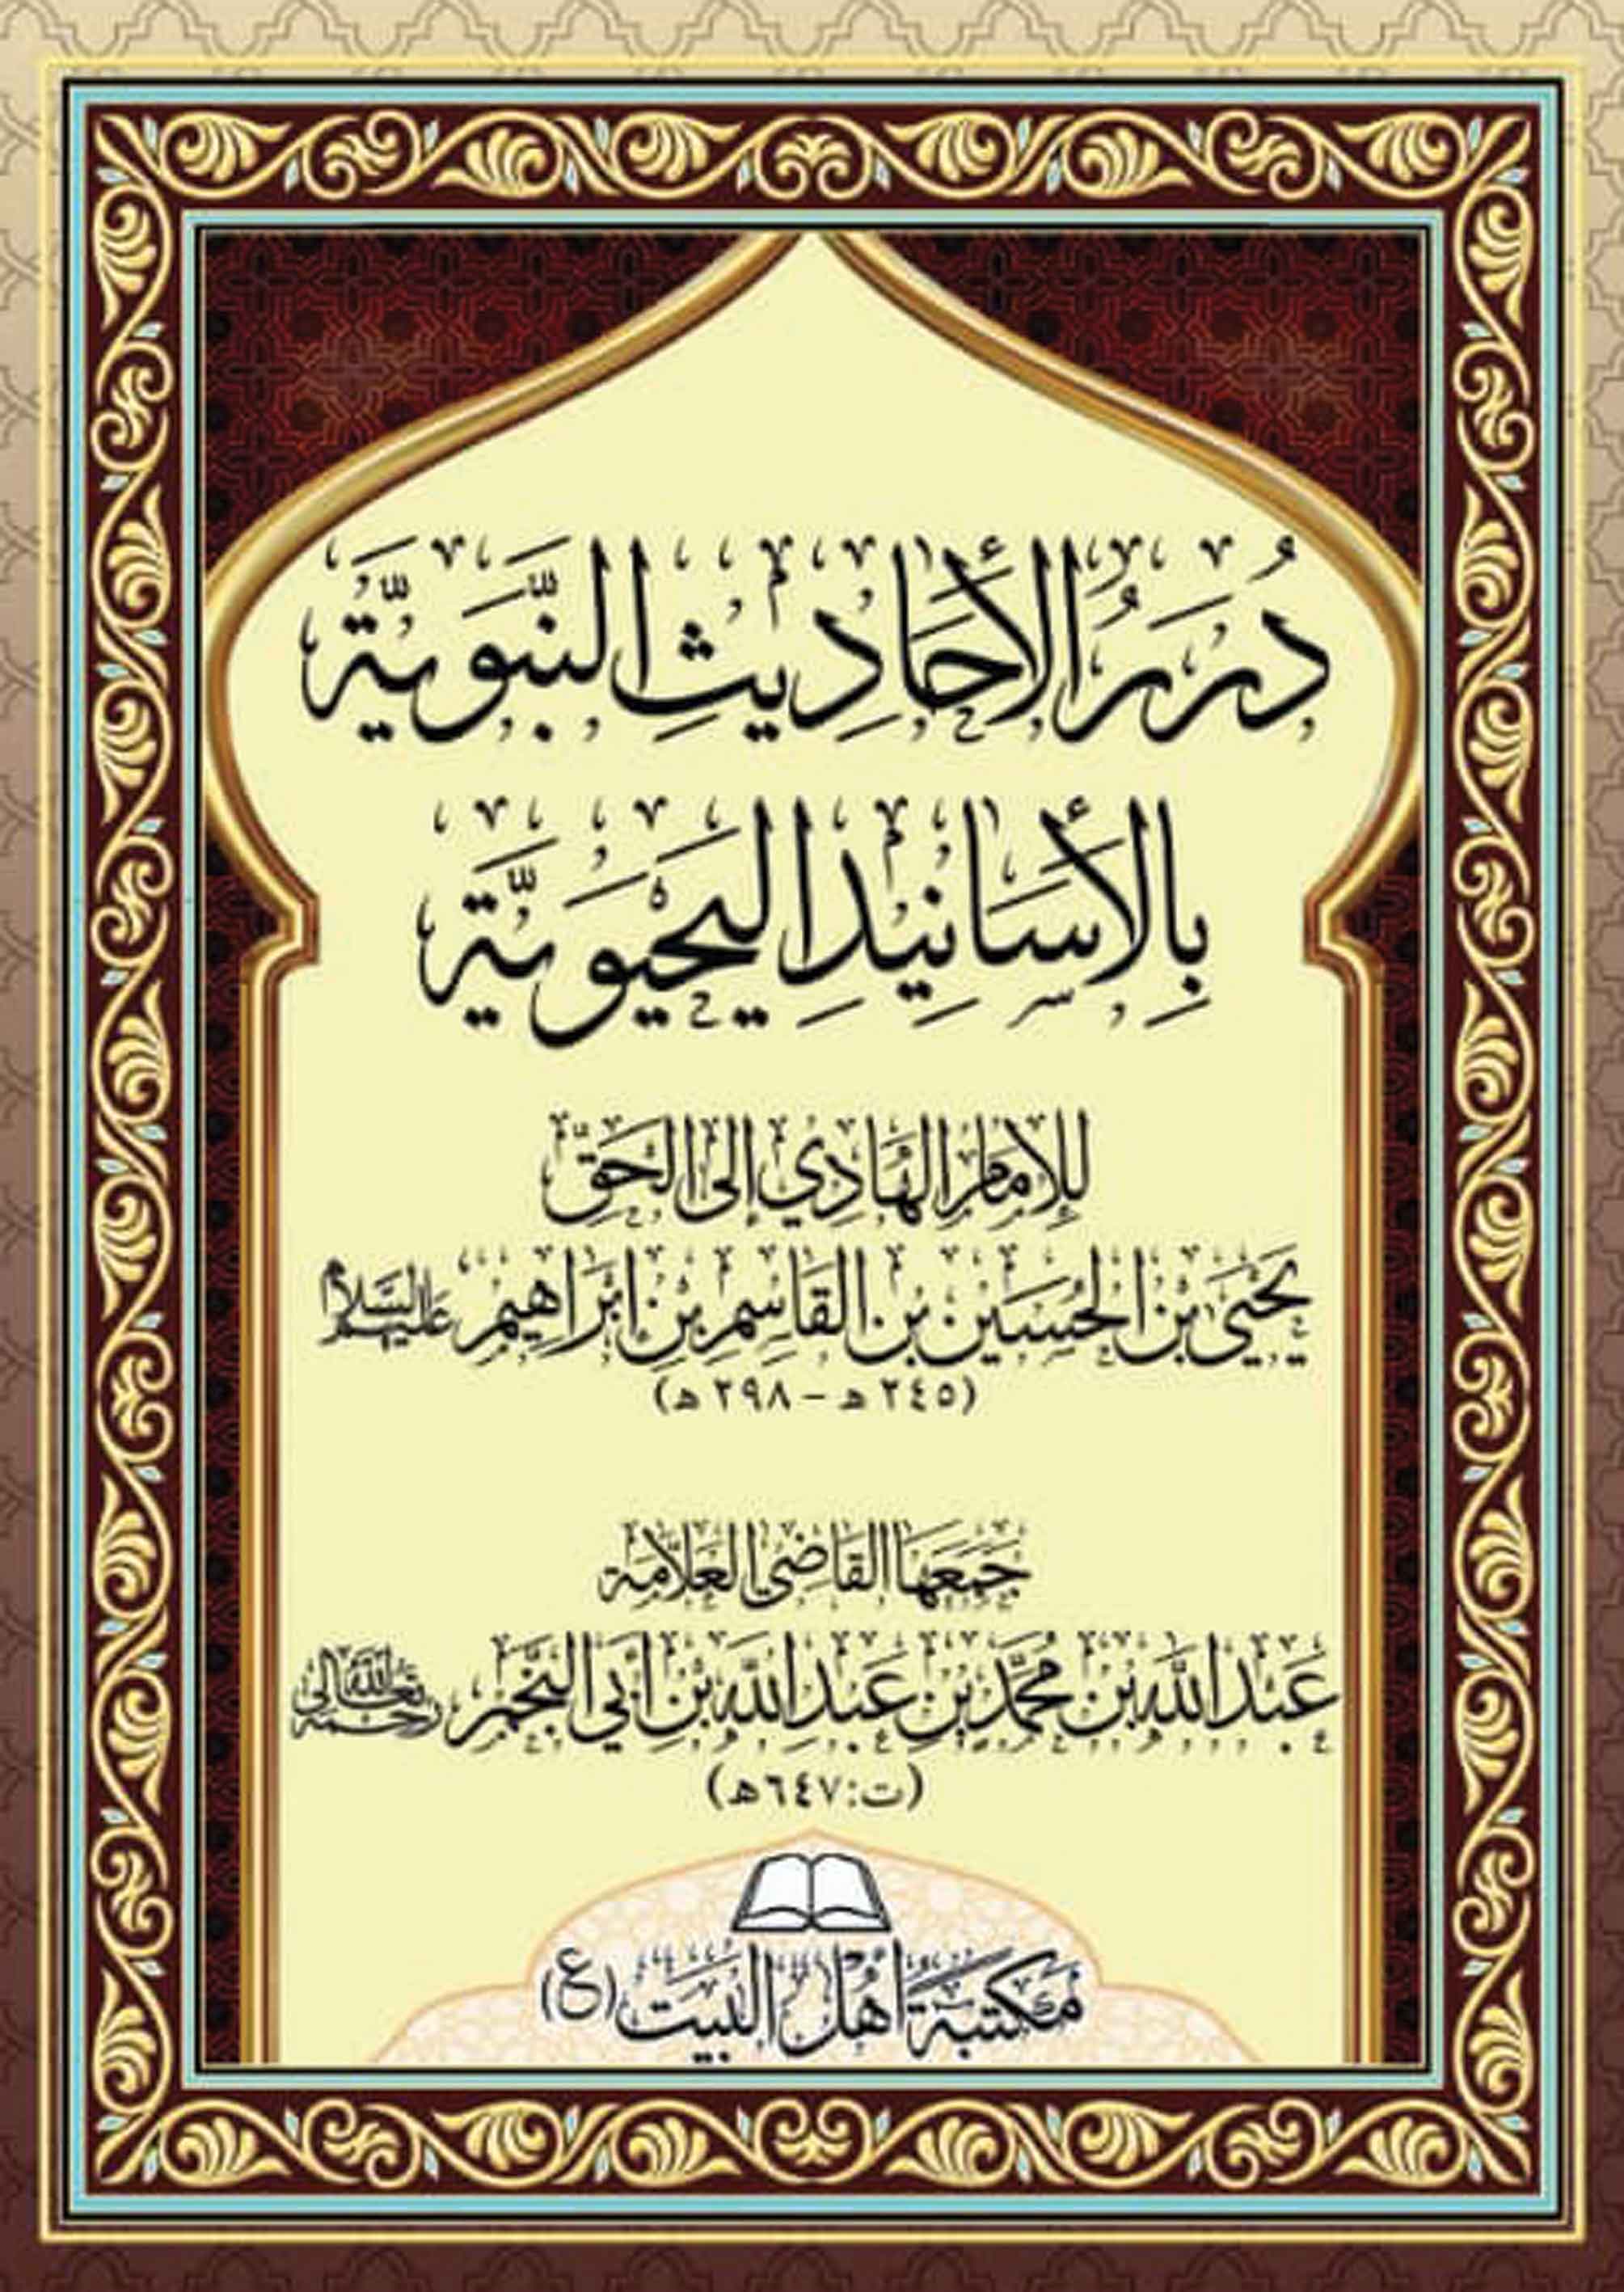 دُرَرُ الأَحَادِيثِ النَّبَوِيَّةِ
بِالأَسَانِيدِ اليَحْيَوِيَّةِ
لِلإِمَامِ الهَادِي إِلَى الحَقِّ
يَحْيَى بْنِ الحُسَيْنِ بْنِ القَاسِمِ بْنِ إِبْرَاهِيمَ عَلَيْهِمُ السَّلَامُ
(٢٤٥ هـ - ٢٩٨ هـ)
جَمَعَهَا القَاضِي العَلَّامَةُ
عَبْدُ اللَّهِ بْنُ مُحَمَّدِ بْنِ عَبْدِ اللَّهِ بْنِ أَبِي النَّجْمِ رَحِمَهُ اللَّهُ تَعَالَى
(ت: ٦٤٧ هـ)
مَكْتَبَةُ أَهْلِ البَيْتِ (ع)